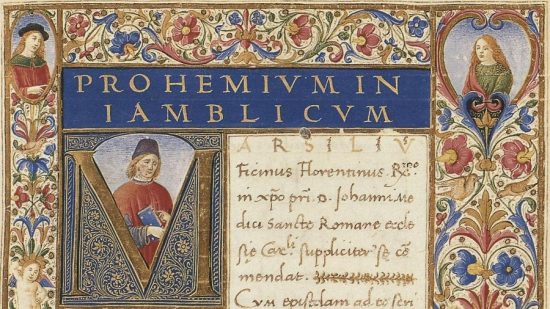 PROHEMIVM IN
IAMBLICVM
MARSILIV
Ficinus Florentinus
in xp̄o pr̄i. D. Iohanni Me
dici Sancto Romane eccle
sie Car.li suppliciter se cō
mendat.
Cvm epistolam ad te scri